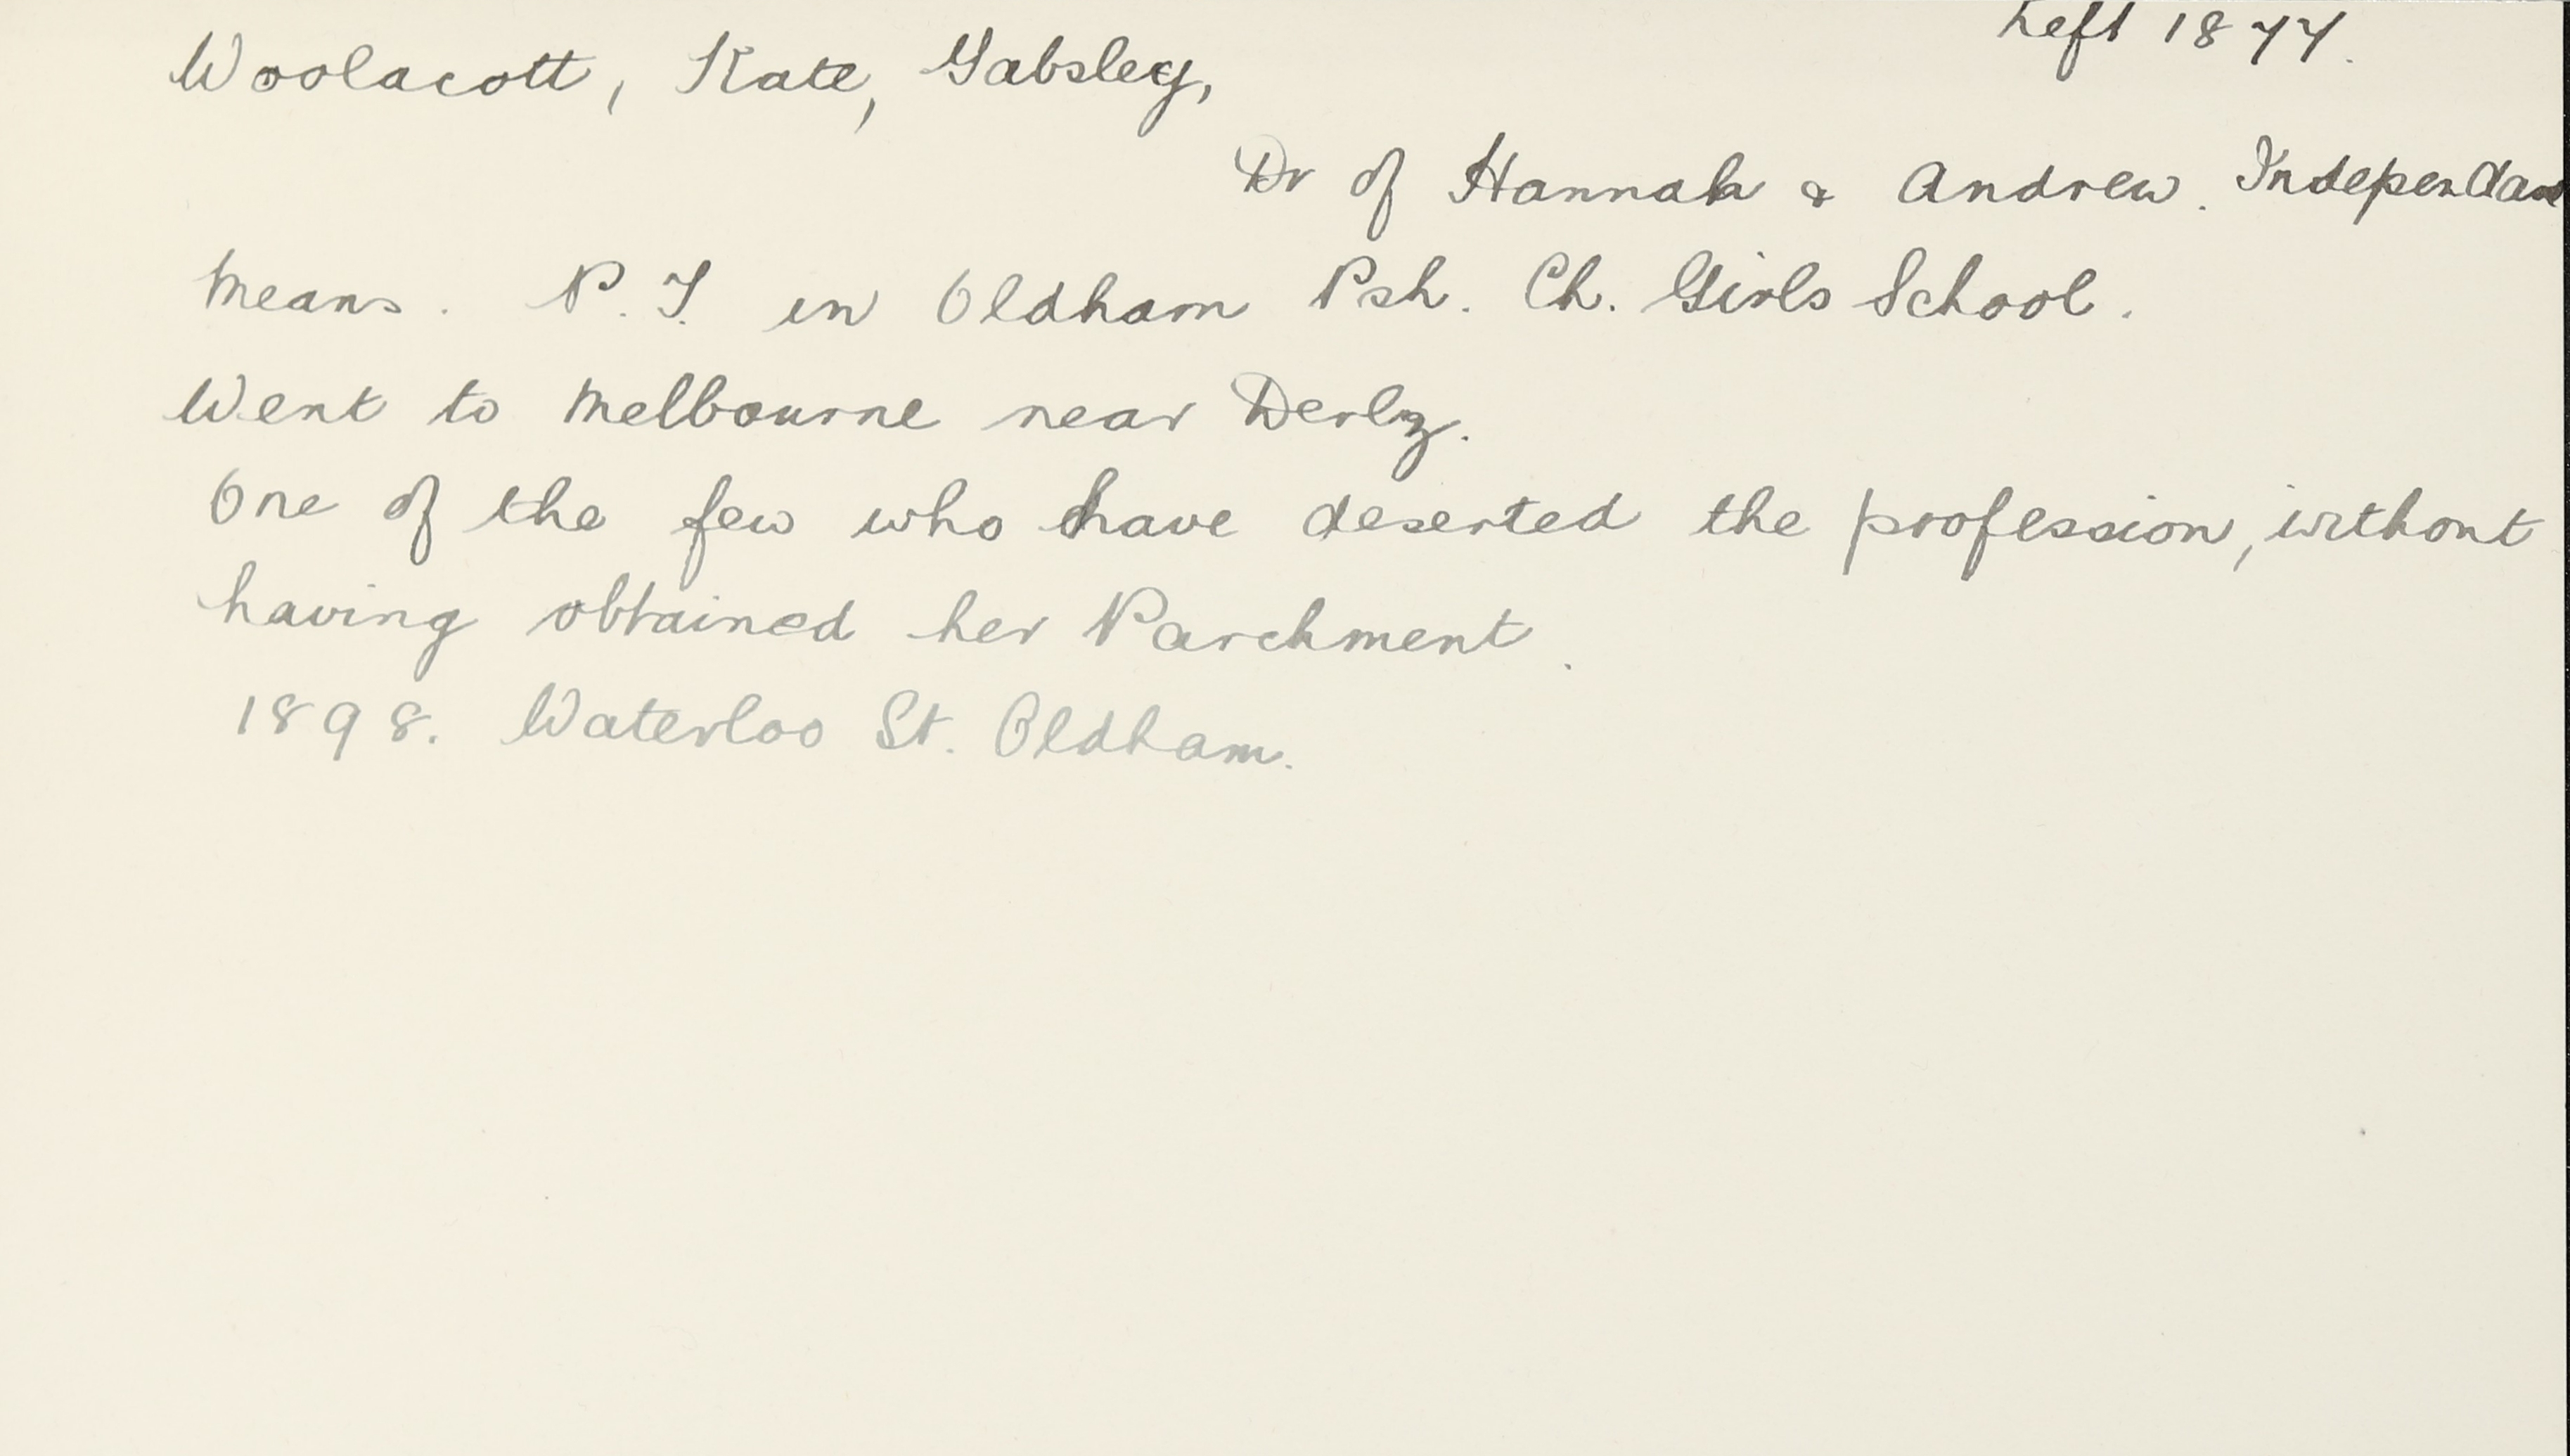 Left 1877.
Woolacott, Kate, Gabsley,
Dr of Hannah & Andrew. Independan
Means. P.T. in Oldham Psh. Ch. Girls School.
Went to Melbourne near Derby.
One of the few who have deserted the profession, without
having obtained her Parchment.
1898. Waterloo St. Oldham.